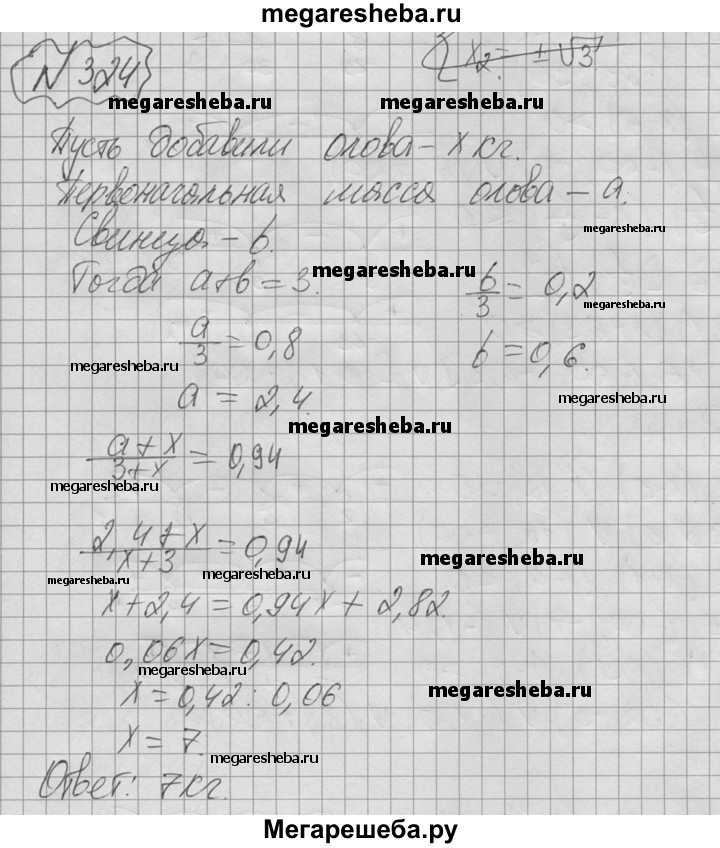 megaresheba.ru
N 324
x₂ = ±√3
megaresheba.ru megaresheba.ru
Пусть добавили олова – x кг.
Первоначальная масса олова – a.
megaresheba.ru
Свинца – b.
Тогда a+b=3.
megaresheba.ru
b/3 = 0,2
megaresheba.ru
a/3 = 0,8
b = 0,6.
megaresheba.ru
a = 2,4.
megaresheba.ru
megaresheba.ru
a+x/3+x = 0,94
megaresheba.ru
2,4+x/x+3 = 0,94
megaresheba.ru
megaresheba.ru megaresheba.ru
x+2,4=0,94x+2,82.
0,06x=0,42.
megaresheba.ru
x=0,42:0,06
megaresheba.ru
x = 7.
megaresheba.ru
Ответ: 7кг.
Мегарешеба.ру